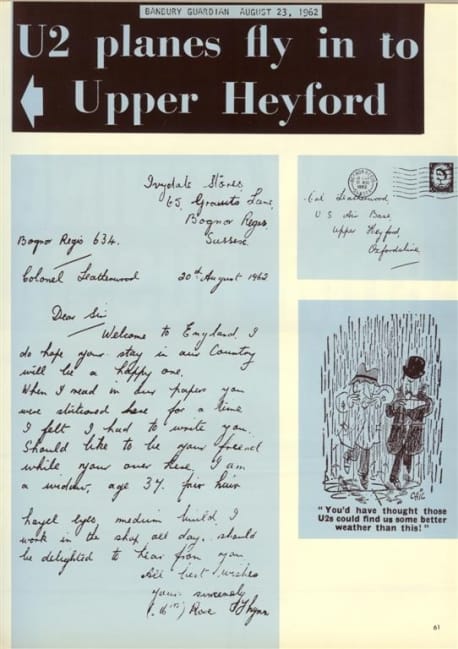 BANBURY GUARDIAN AUGUST 23, 1962
U2 planes fly in to
Upper Heyford
Ivydale Stores,
65, Gravits Lane,
Bognor Regis,
Sussex.
Bognor Regis 634.
Colonel Leatherwood 20th August 1962
Dear Sir
Welcome to England. I
do hope your stay in our Country
will be a happy one.
When I read in our papers you
were stationed here for a time
I felt I had to write you.
Should like to be your friend
while your over here. I am
a widow, age 37. fair hair
hazel eyes, medium build. I
work in the shop all day. should
be delighted to hear from you
All best wishes
yours sincerely
(Mrs) Rose
Col Leatherwood,
U S Air Base,
Upper Heyford,
Oxfordshire
"You'd have thought those
U2s could find us some better
weather than this!"
61